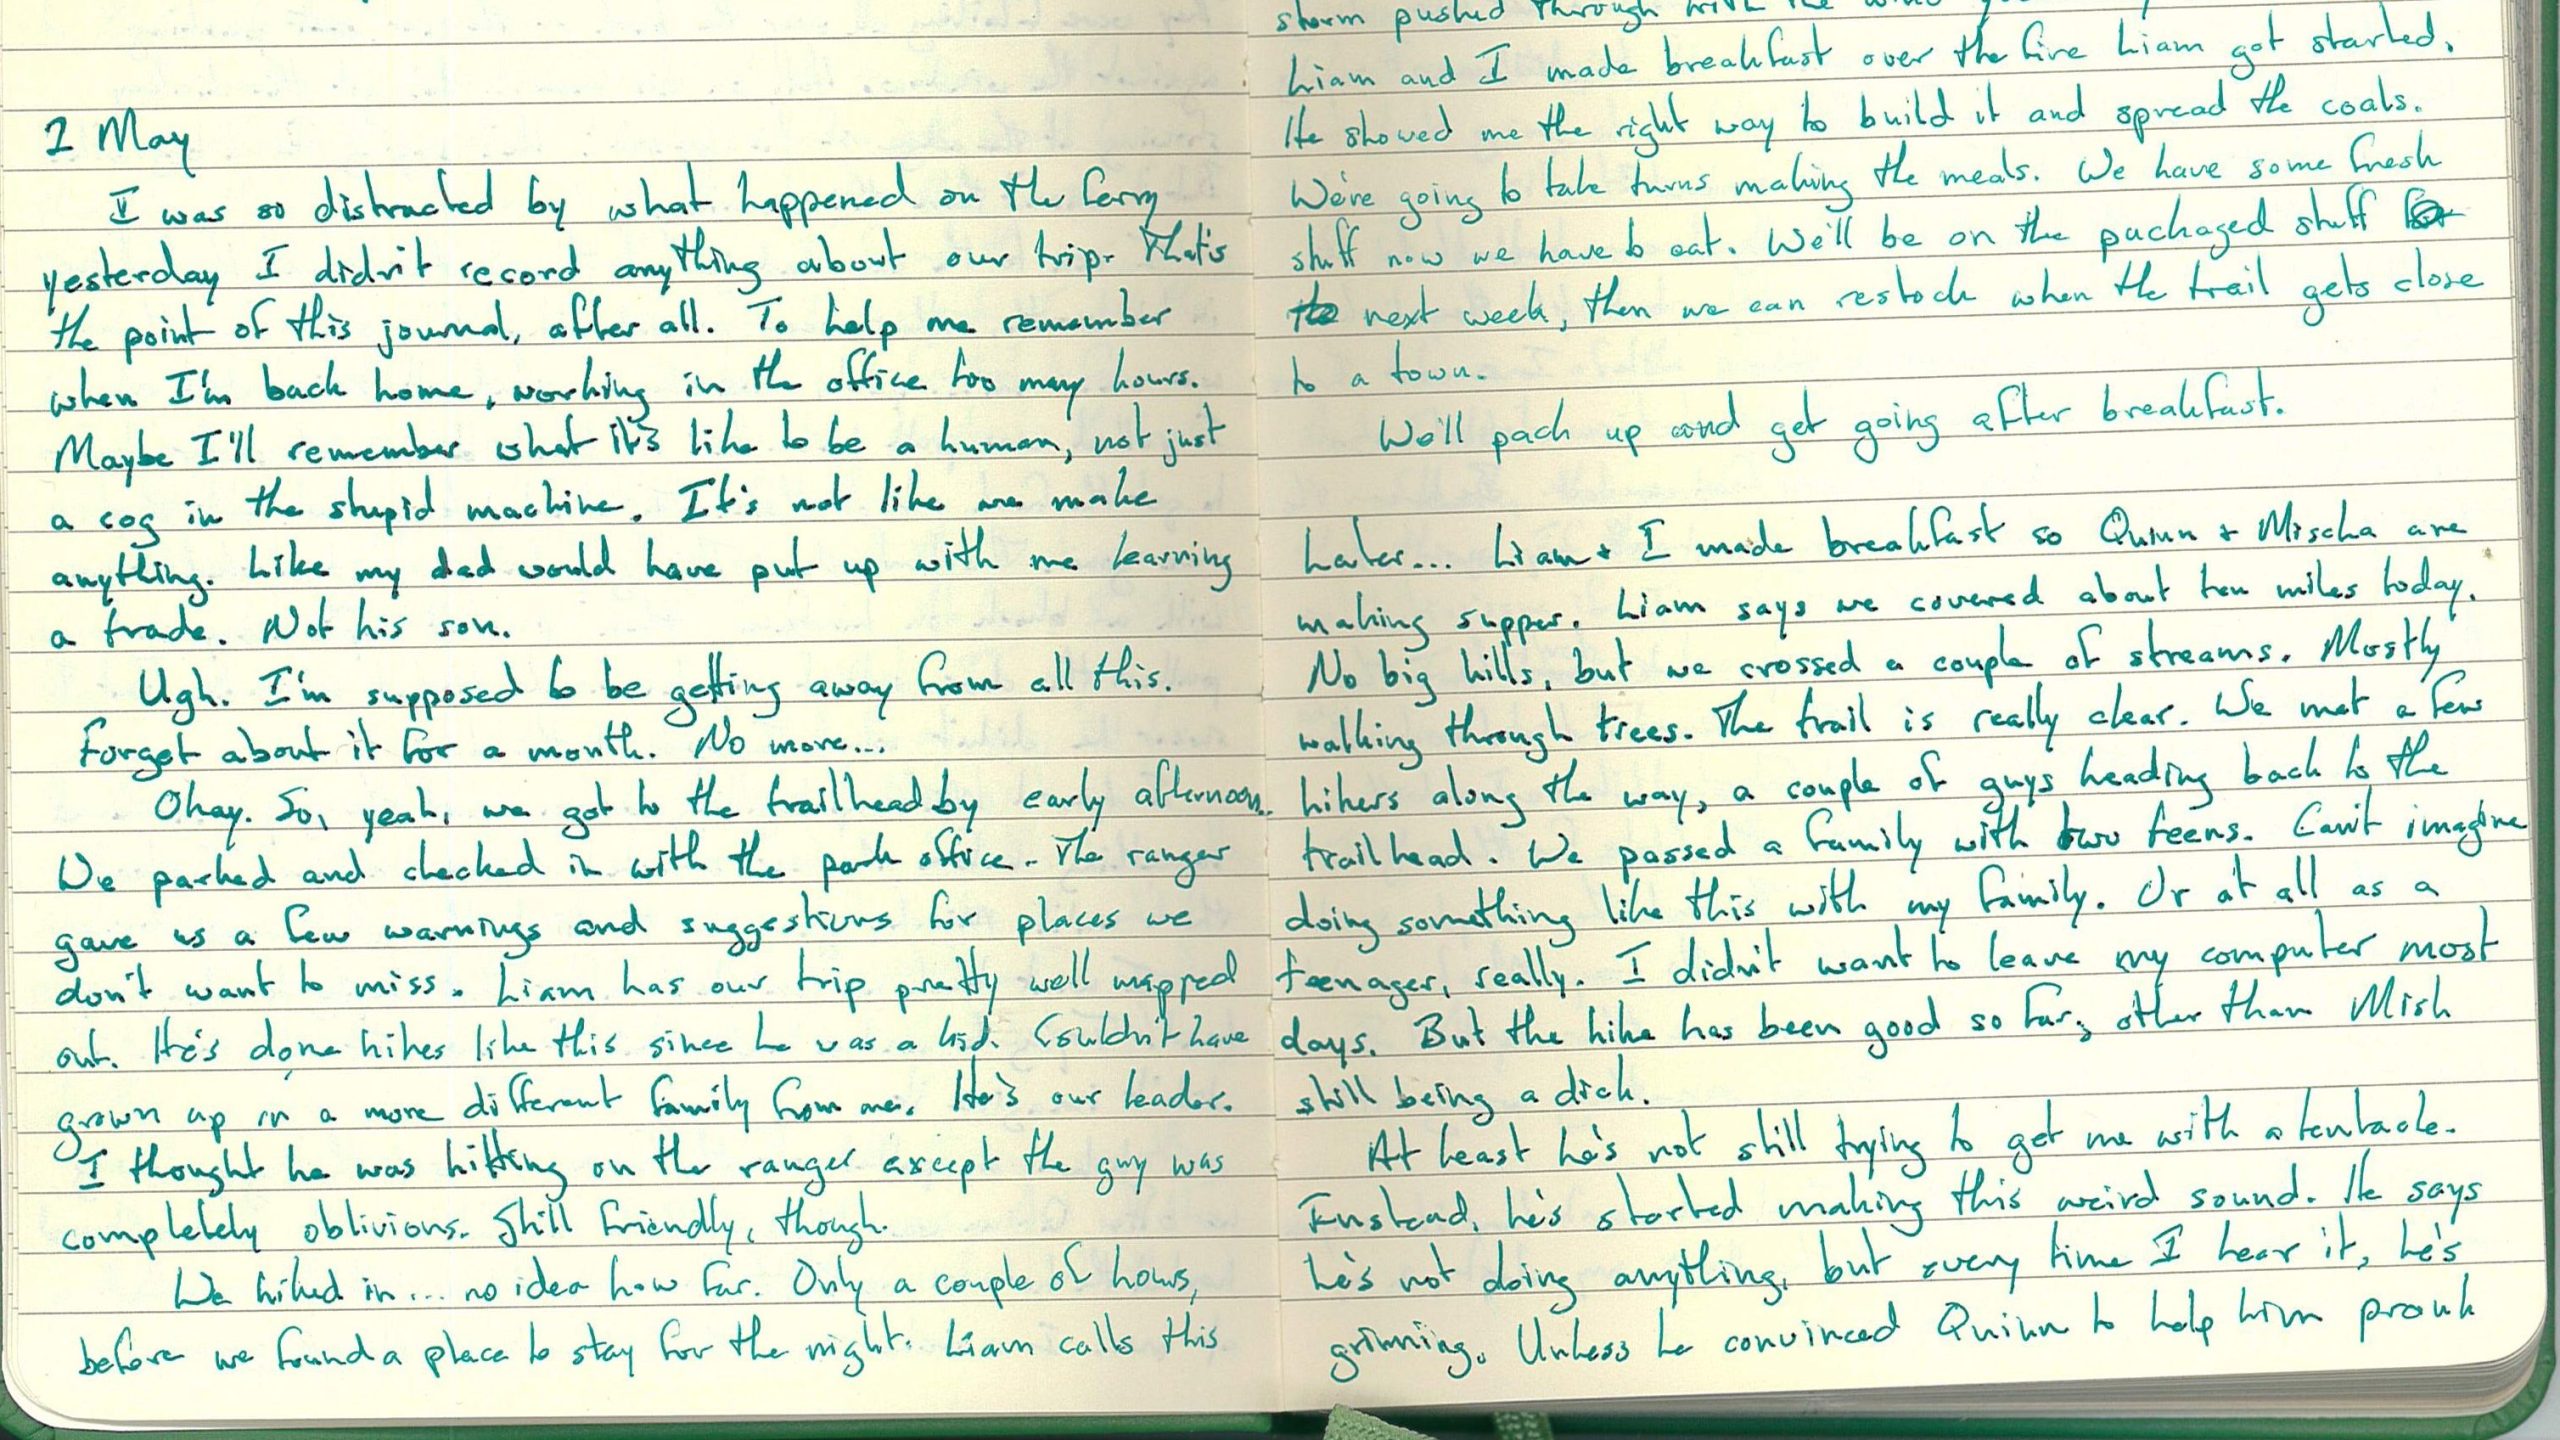 2 May
I was so distracted by what happened on the ferry
yesterday I didn't record anything about our trip. That's
the point of this journal, after all. To help me remember
when I'm back home, working in the office too many hours.
Maybe I'll remember what it's like to be a human, not just
a cog in the stupid machine. It's not like we make
anything. Like my dad would have put up with me learning
a trade. Not his son.
Ugh. I'm supposed to be getting away from all this.
Forget about it for a month. No more...
Okay. So, yeah, we got to the trailhead by early afternoon.
We parked and checked in with the park office. The ranger
gave us a few warnings and suggestions for places we
don't want to miss. Liam has our trip pretty well mapped
out. He's done hikes like this since he was a kid. Couldn't have
grown up in a more different family from me. He's our leader.
I thought he was hitting on the ranger except the guy was
completely oblivious. Still friendly, though.
We hiked in... no idea how far. Only a couple of hours,
before we found a place to stay for the night. Liam calls this
storm pushed through with the wind
Liam and I made breakfast over the fire Liam got started.
He showed me the right way to build it and spread the coals.
We're going to take turns making the meals. We have some fresh
stuff now we have to eat. We'll be on the packaged stuff
next week, then we can restock when the trail gets close
to a town.
We'll pack up and get going after breakfast.
Later... Liam + I made breakfast so Quinn + Mischa are
making supper. Liam says we covered about ten miles today.
No big hills, but we crossed a couple of streams. Mostly
walking through trees. The trail is really clear. We met a few
hikers along the way, a couple of guys heading back to the
trailhead. We passed a family with two teens. Can't imagine
doing something like this with my family. Or at all as a
teenager, really. I didn't want to leave my computer most
days. But the hike has been good so far, other than Mish
still being a dick.
At least he's not still trying to get me with a tentacle.
Instead, he's started making this weird sound. He says
he's not doing anything, but every time I hear it, he's
grinning. Unless he convinced Quinn to help him prank